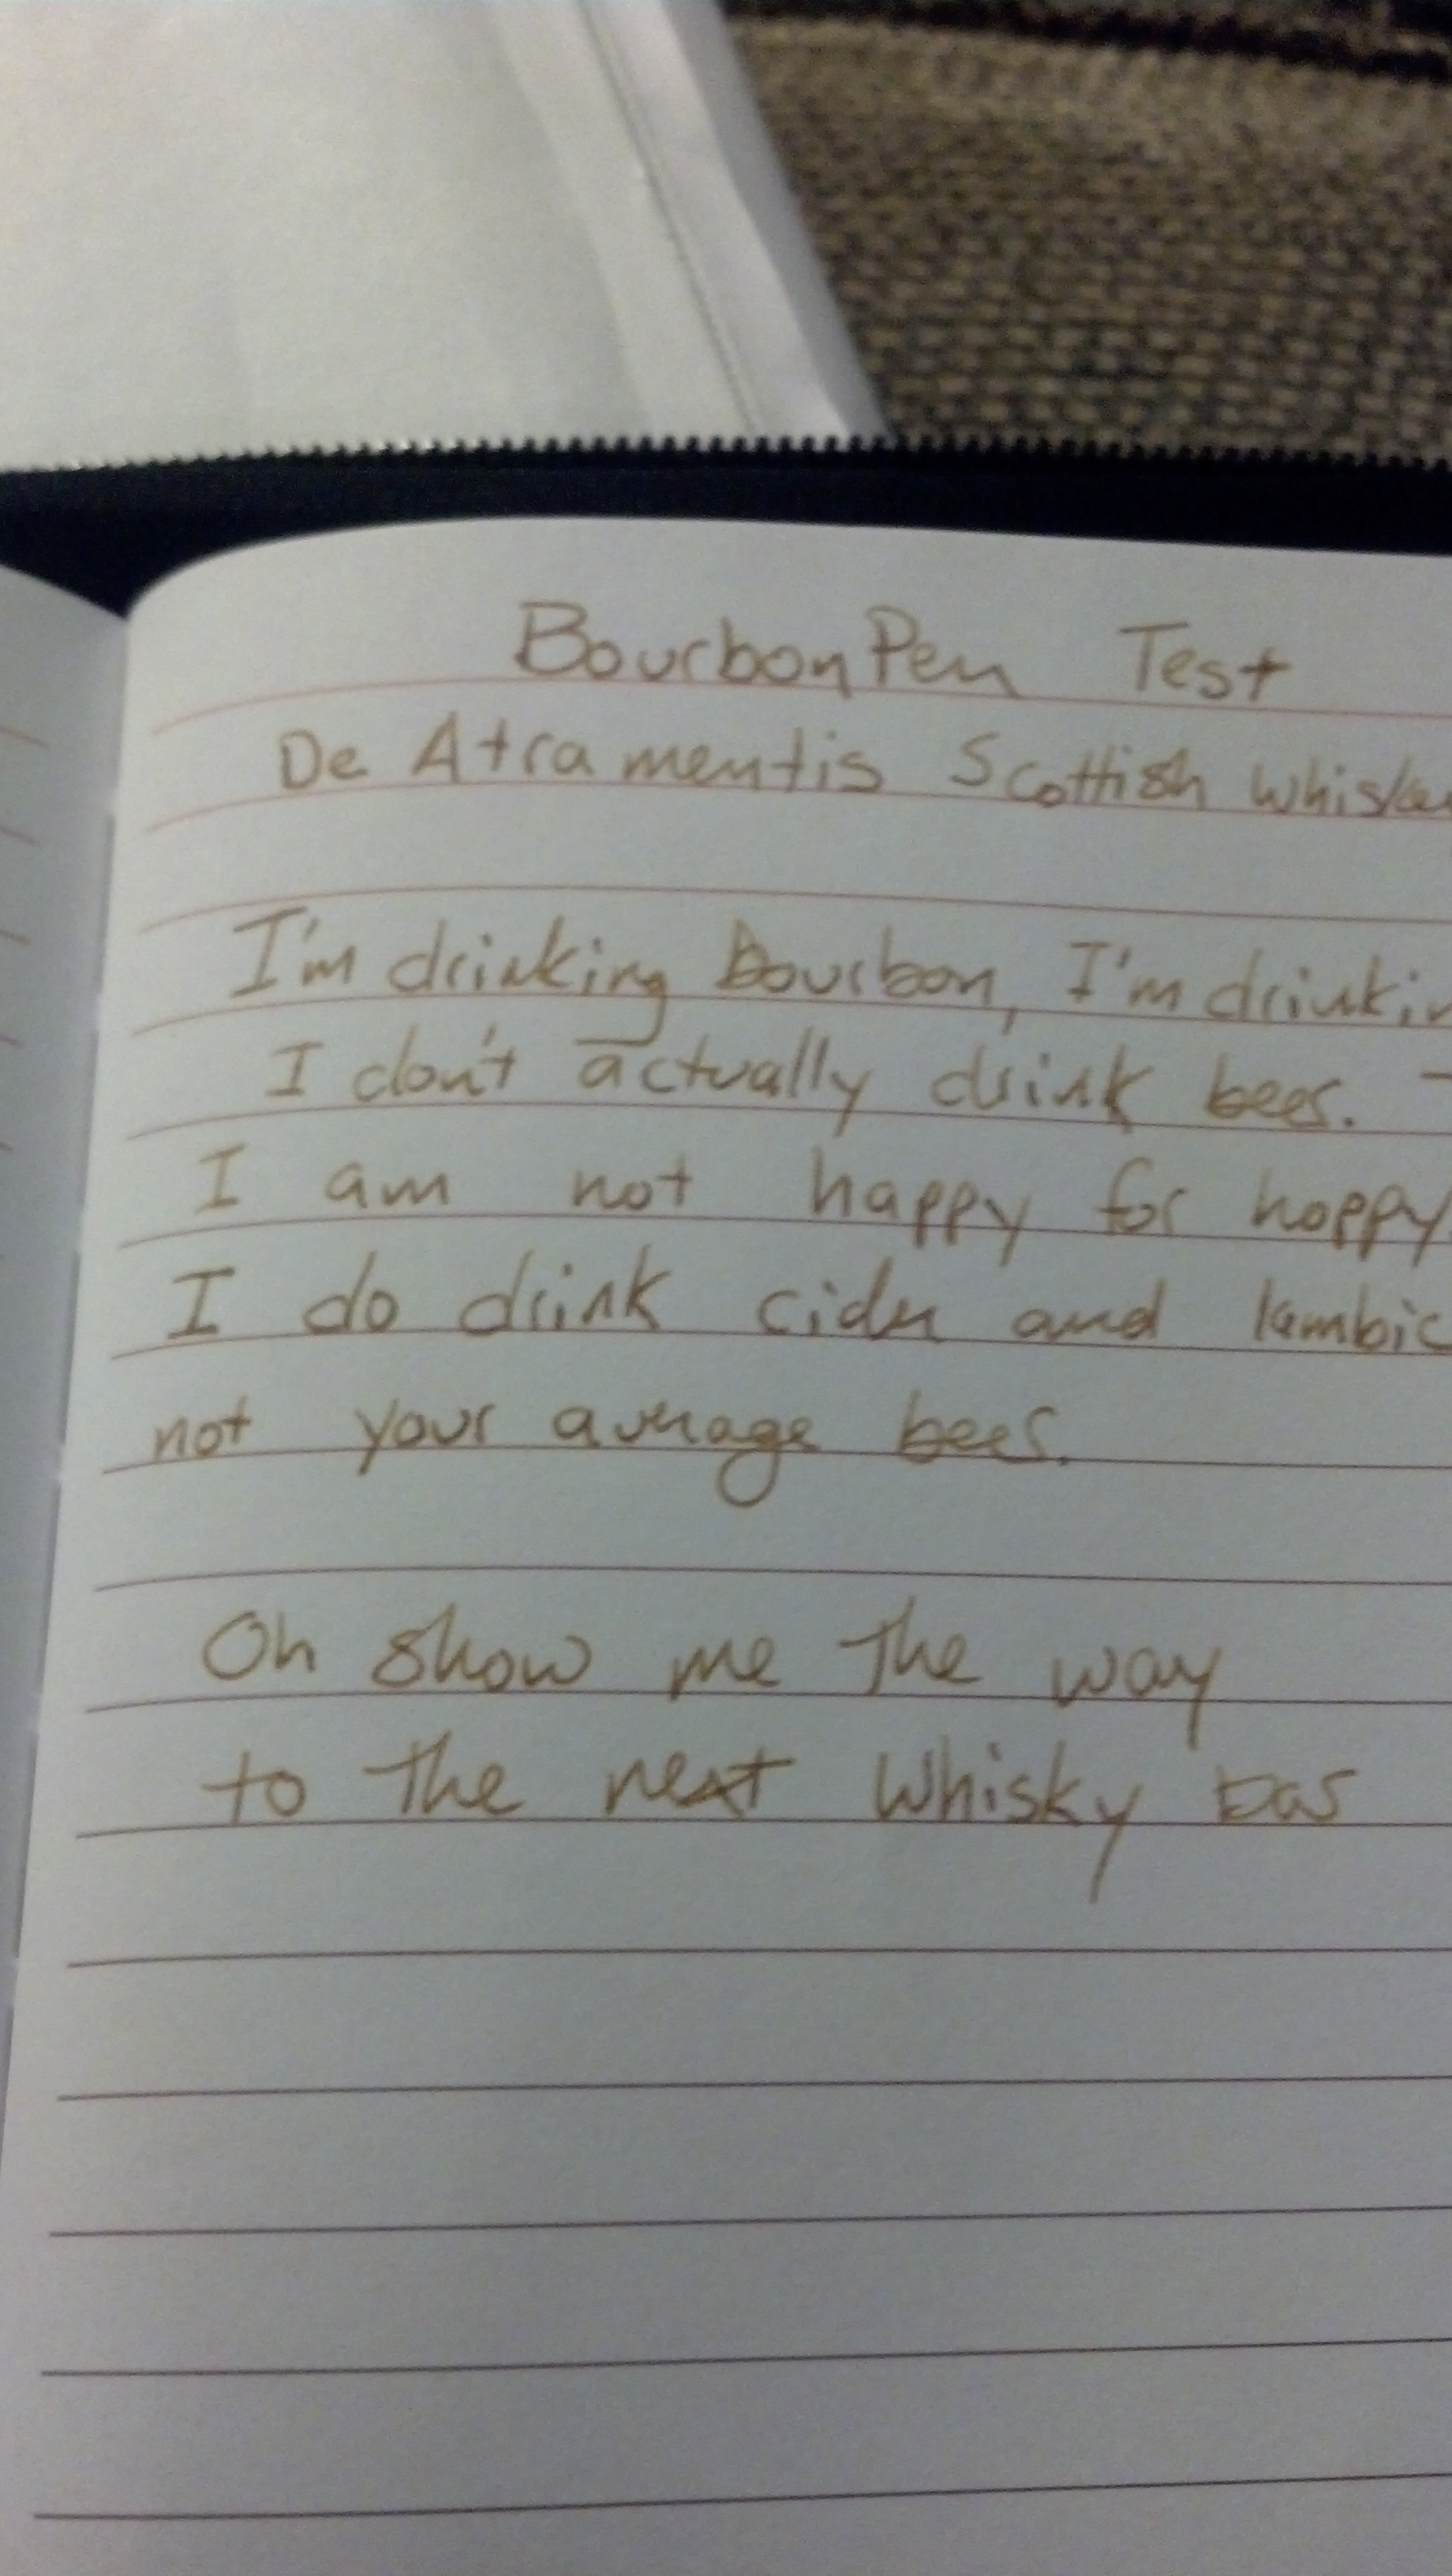 Bourbon Pen Test
De Atramentis Scottish
I'm drinking bourbon, I'm
I don't actually drink beer.
I am not happy for hoppy
I do drink cider and lambic
not your average beer.
Oh show me the way
to the next Whisky bar